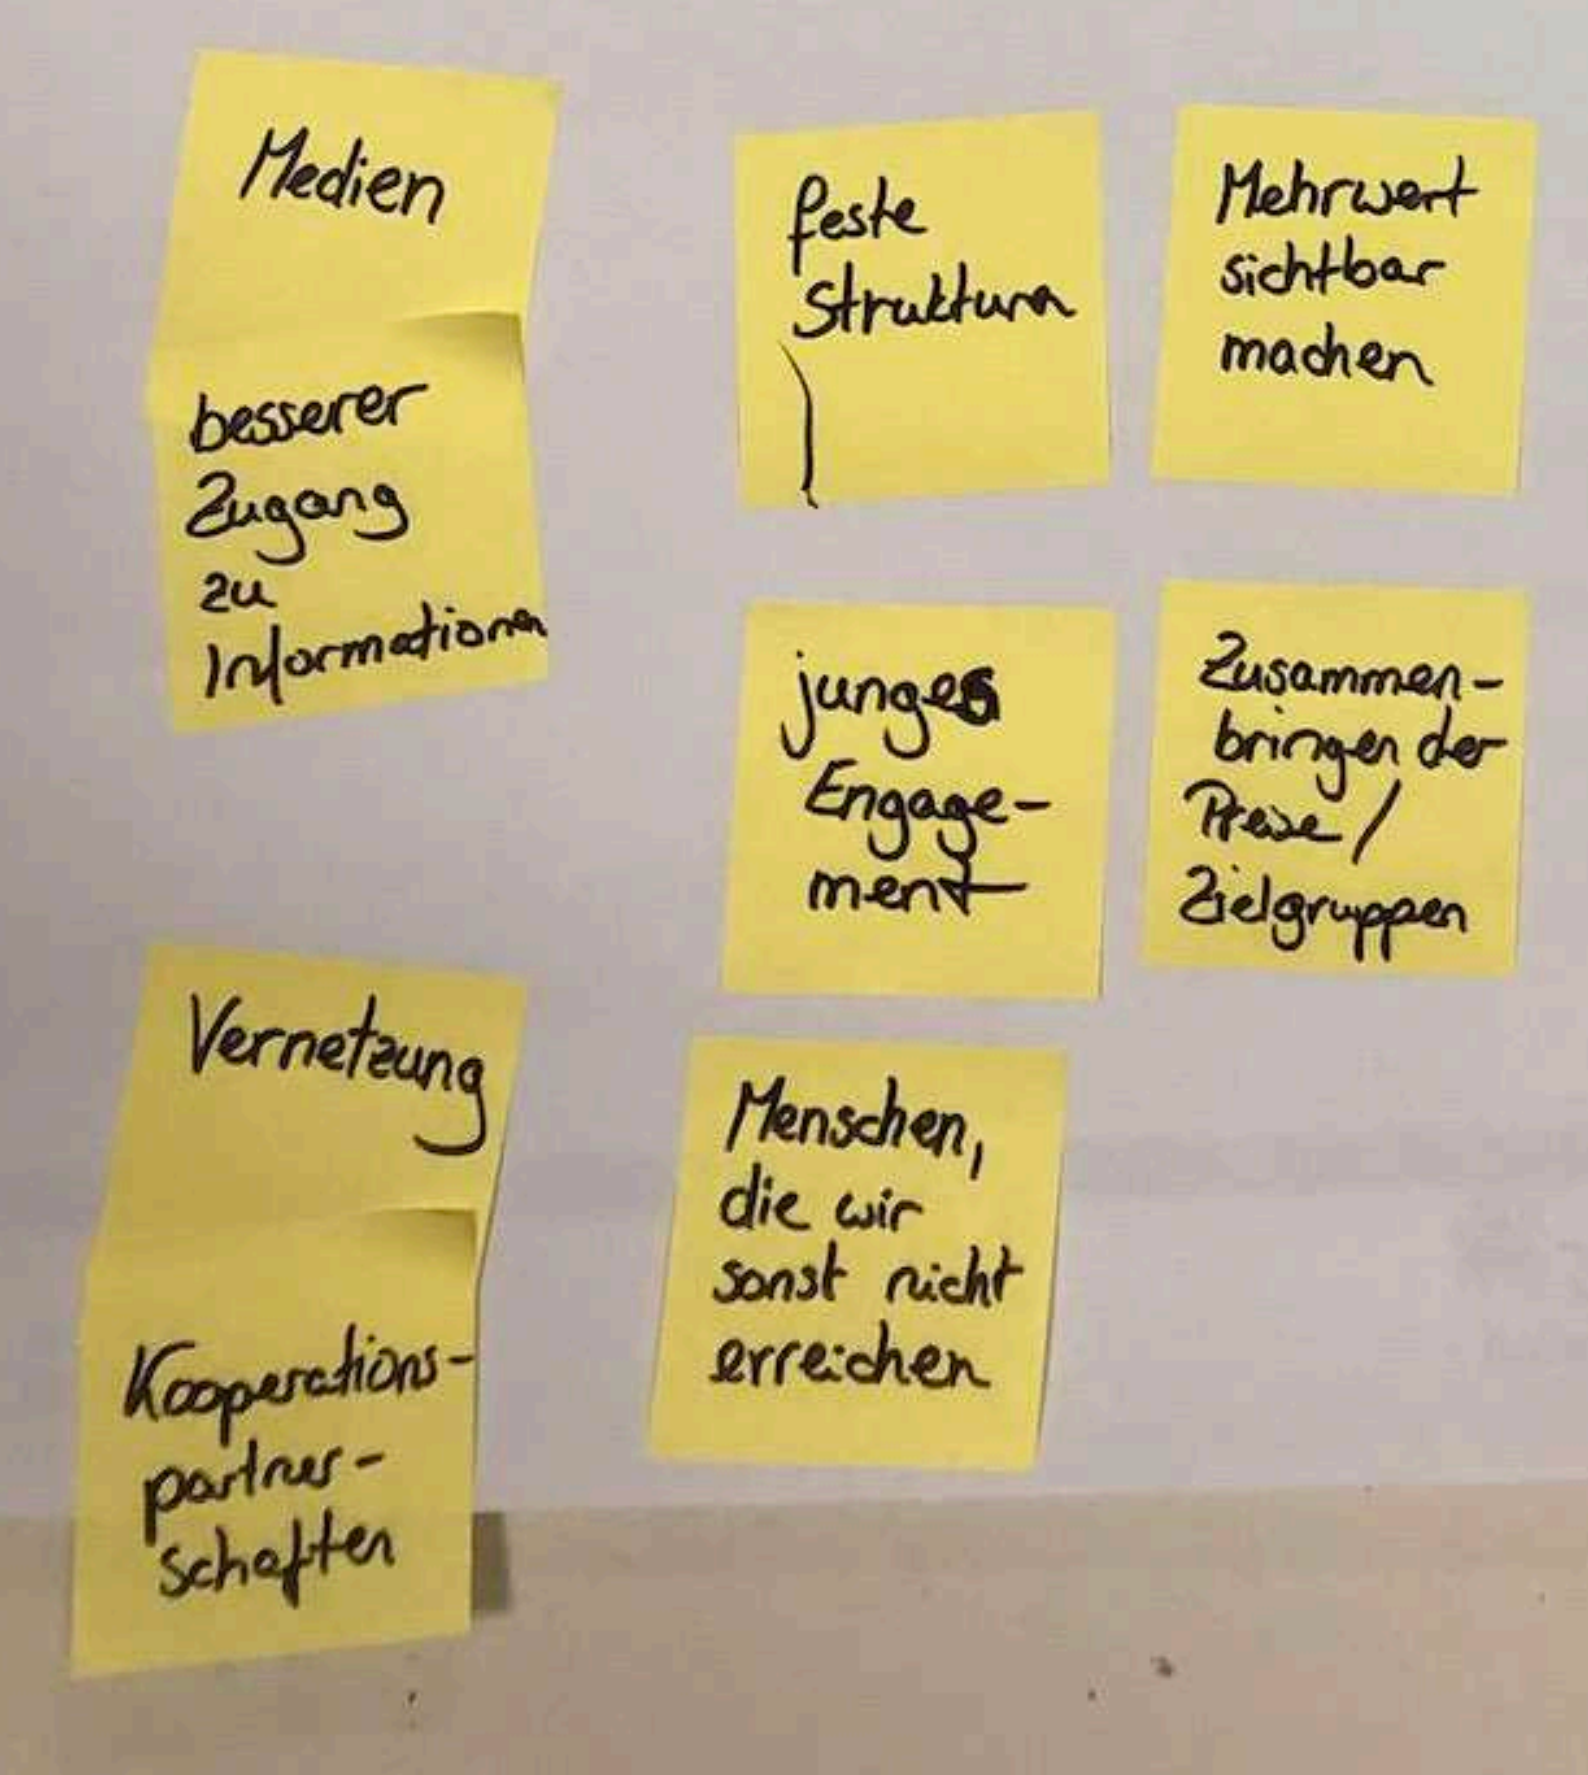 Medien
besserer
Zugang
zu
Informationen
feste
Strukturen
Mehrwert
sichtbar
machen
junges
Engage-
ment
Zusammen-
bringen der
Preise/
Zielgruppen
Vernetzung
Kooperations-
partner-
schaften
Menschen,
die wir
sonst nicht
erreichen